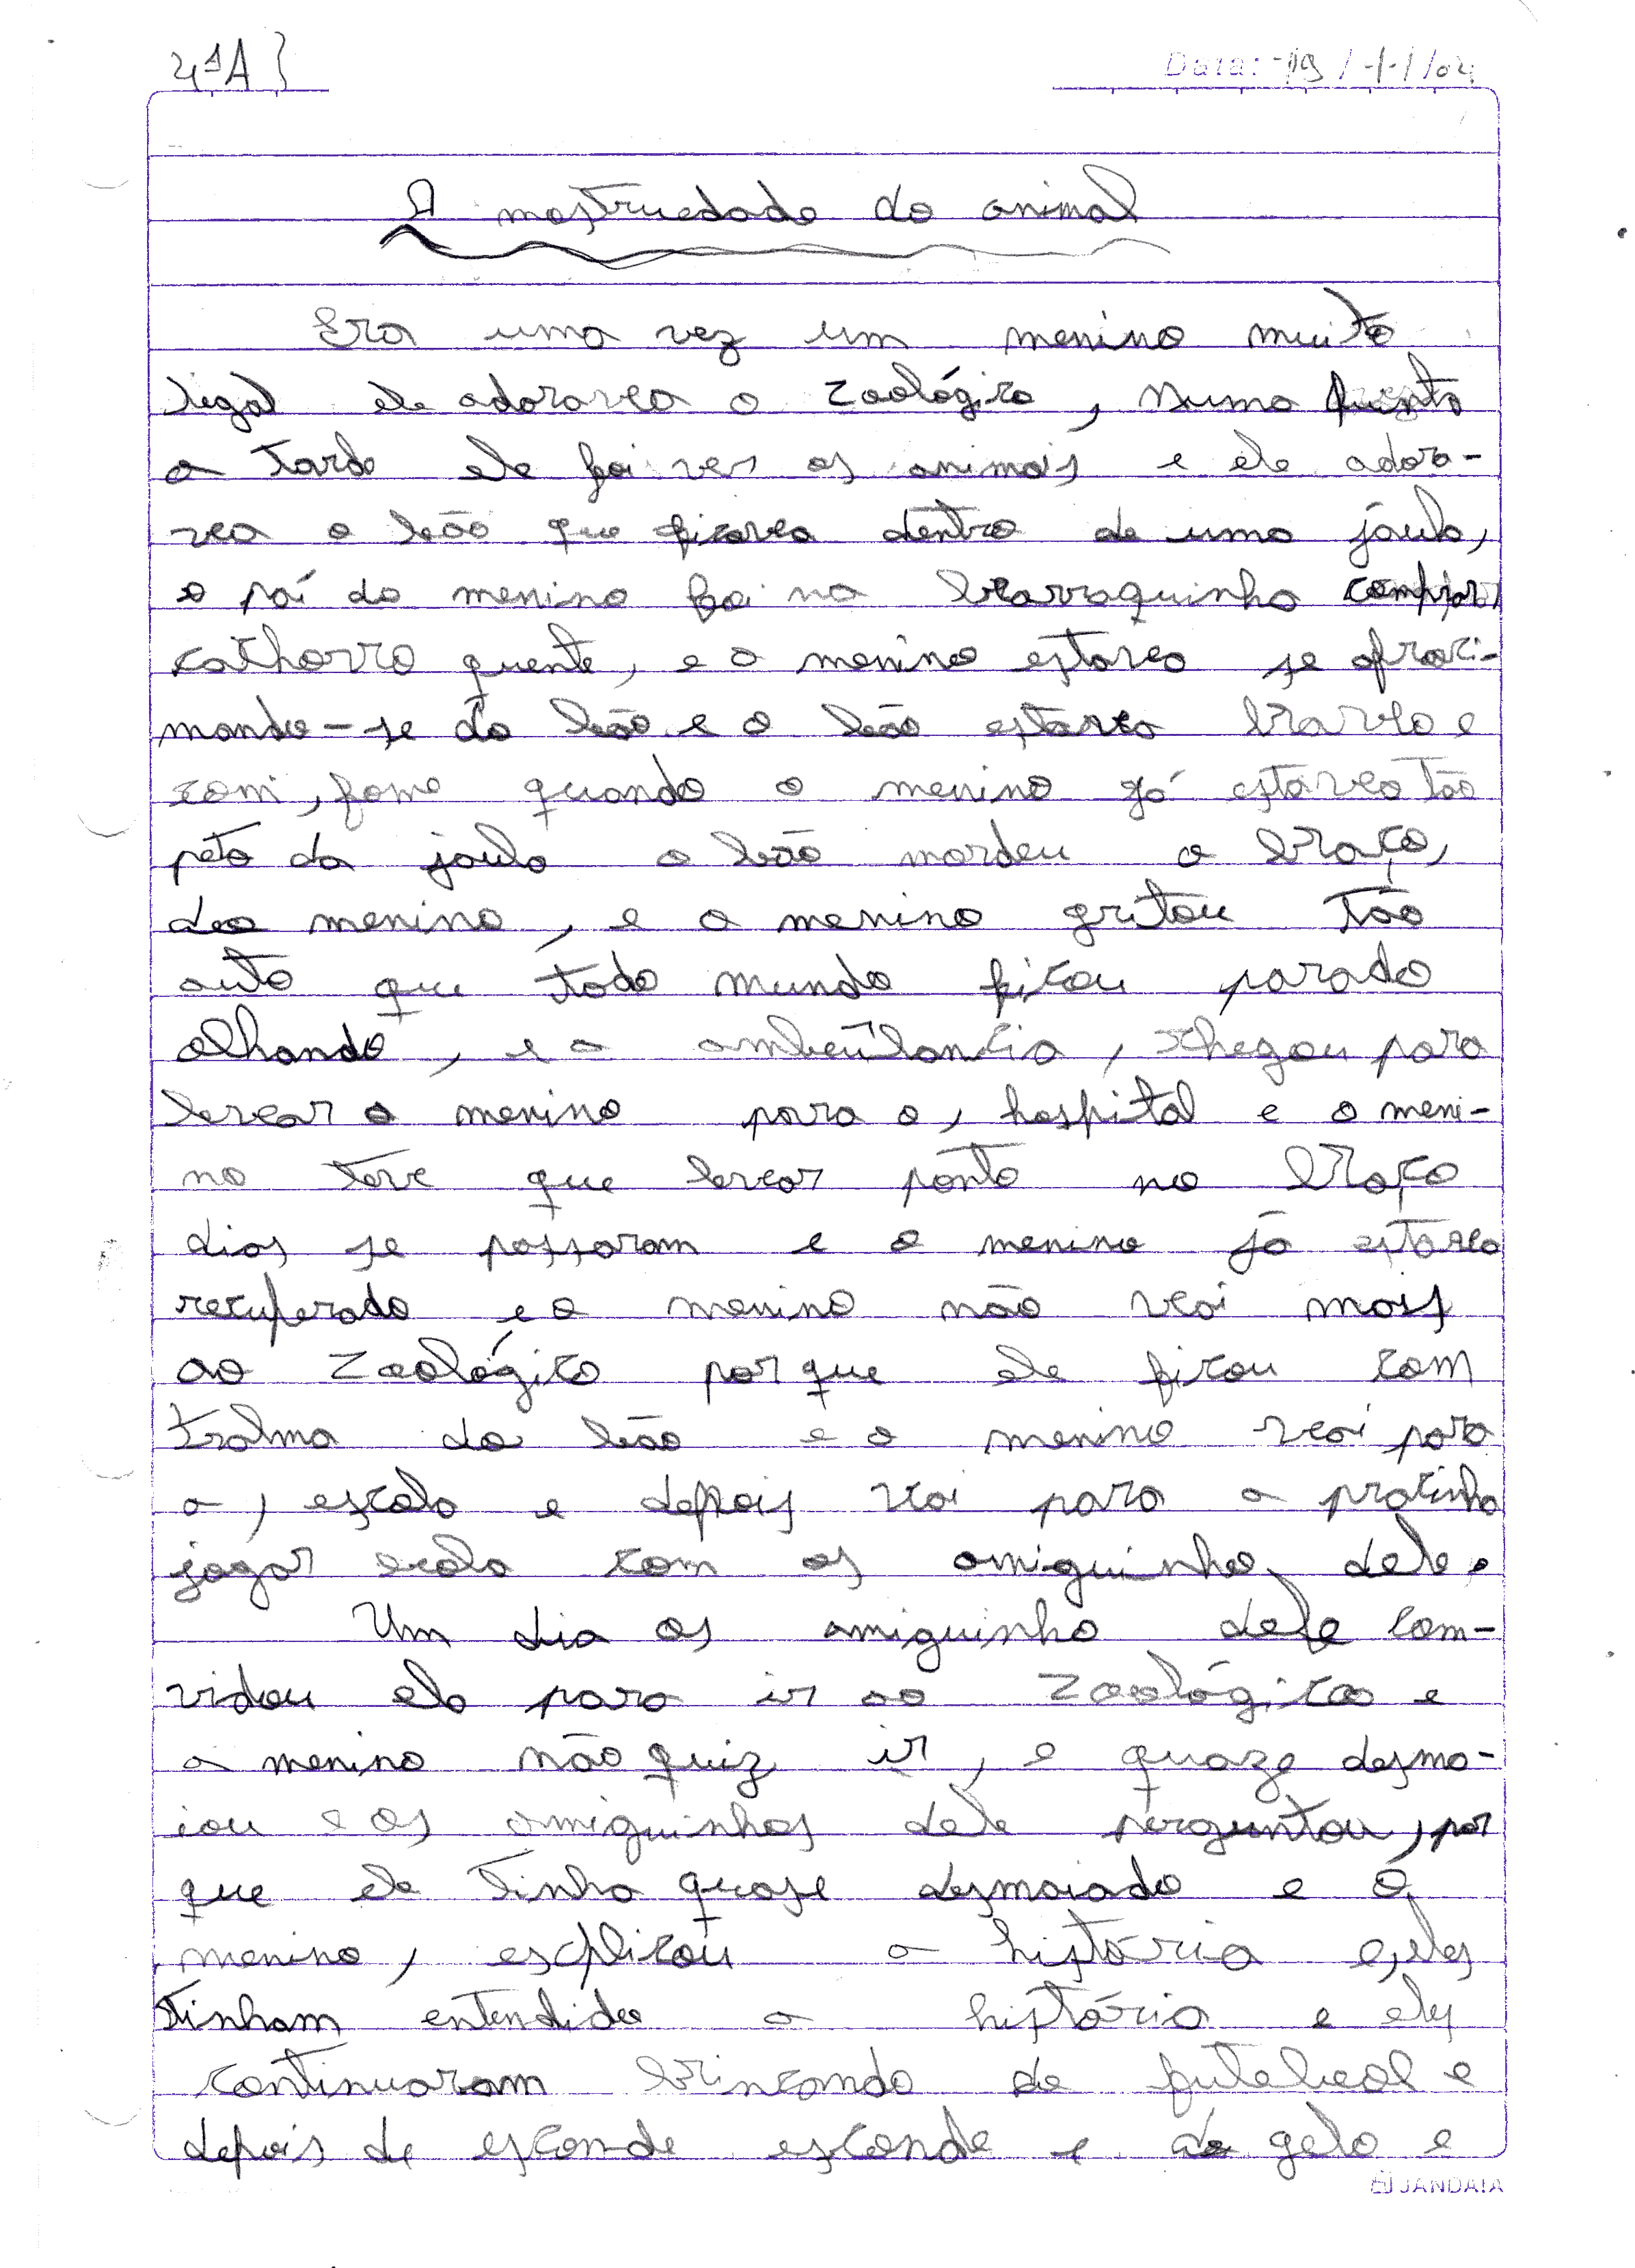 4ªA}
Data: 19/11/04
A mostruedade do animal
Era uma vez um menino muito
legal ele adorava o zoológico, Numa quinta
a tarde ele foi ver os animais e ele adora-
va o leão que ficava dentro de uma jaula,
o paí do menino foi na barraquinha comprar
cathorro quente, e o menino estava se aproxi-
mando-se do leão e o leão estava bravo e
com, fome quando o menino já estava tão
peto da jaula o leão mordeu o braço,
do menino, e o menino gritou tão
auto que todo mundo ficou parado
olhando, e a ambûlancia, chegou para
levar o menino para o, hospital e o meni-
no teve que levar ponto no braço
dias se passaram e o menino já estava
recuperado e o menino não voi mais
ao zoológico por que ele ficou com
tralma do leão e o menino voi para
a, escola e depois voi para a pracinha
jogar bola com os amiguinho dele.
Um dia os amiguinho dele com-
vidou ele para ir ao zoológico e
o menino não quiz ir, e quaze desma-
iou e os amiguinhos dele perguntou, por
que ele tinha quase desmaiado e o
menino, esplicou a história e, eles
tinham entendido a história e eles
continuaram brincando de futebol e
depois de escon-de esconde e de gelo e
JANDAIA